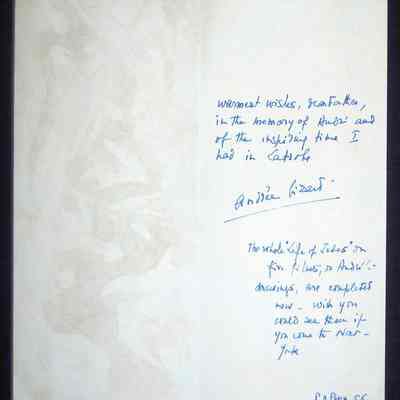 warmest wishes, dear Father,
in the memory of André and
of the inspiring time I
had in Latrobe
Andrée
The whole "Life of Jesus" on
five films, to André's
drawings, are completed
now – wish you
could see them if
you come to New-
York